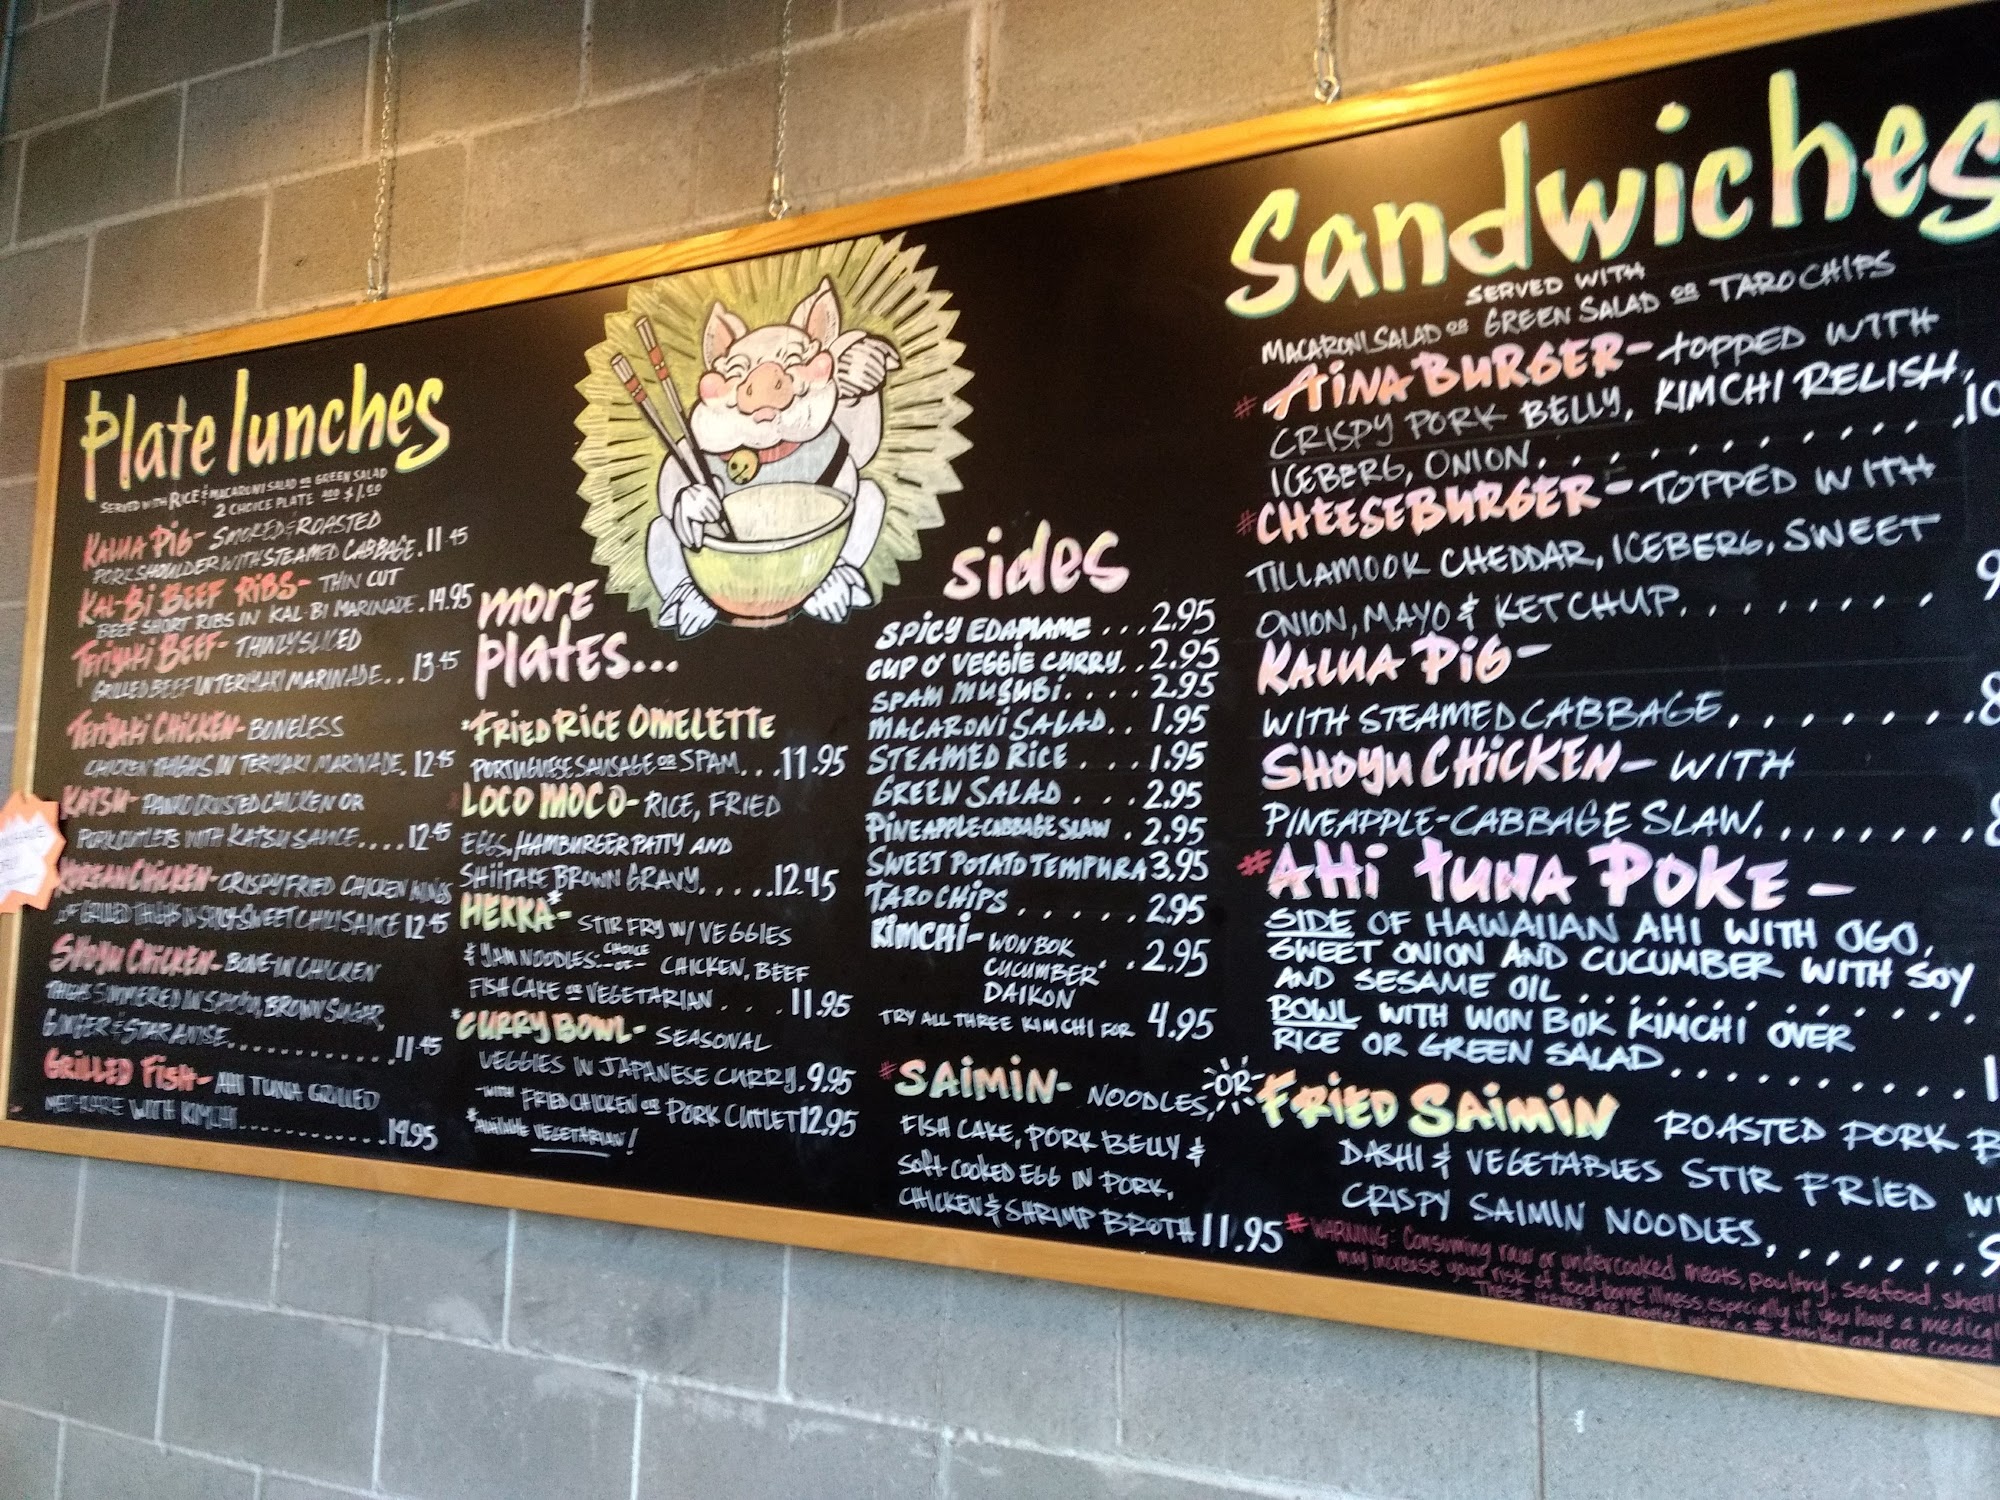 Plate lunches
SERVED WITH RICE & MACARONI SALAD OR GREEN SALAD
2 CHOICE PLATE ADD $1.00
KALUA PIG- SMOKED & ROASTED
PORK SHOULDER WITH STEAMED CABBAGE. 11.45
KAL-Bi BEEF RiBS- THIN CUT
BEEF SHORT RIBS IN KAL-BI MARINADE. 14.95
TERiYAKi BEEF- THINLY SLICED
GRILLED BEEF IN TERIYAKI MARINADE.. 13.45
TERiYAKi CHiCKEN- BONELESS
CHICKEN THIGHS IN TERIYAKI MARINADE. 12.45
KATSU- PANKO CRUSTED CHICKEN OR
PORK CUTLETS WITH KATSU SAUCE.... 12.45
KOREAN CHiCKEN- CRISPY FRIED CHICKEN WINGS
OR GRILLED THIGHS IN SPICY SWEET CHILI SAUCE 12.45
SHOYU CHiCKEN- BONE-IN CHICKEN
THIGHS SIMMERED IN SHOYU, BROWN SUGAR,
GINGER & STAR ANISE............ 11.45
GRILLED FiSH- AHI TUNA GRILLED
MED-RARE WITH KIMCHI............ 14.95
more
plates...
*FRiED RiCE OMELETTE
PORTUGUESE SAUSAGE OR SPAM... 11.95
LOCO MOCO- RICE, FRIED
EGGS, HAMBURGER PATTY AND
SHIITAKE BROWN GRAVY..... 12.45
HEKKA*- STIR FRY W/ VEGGIES
& YAM NOODLES. CHOICE OF- CHICKEN, BEEF
FISH CAKE OR VEGETARIAN... 11.95
*CURRY BOWL- SEASONAL
VEGGIES IN JAPANESE CURRY. 9.95
-WITH FRIED CHICKEN OR PORK CUTLET 12.95
*AVAILABLE VEGETARIAN!
sides
SPICY EDAMAME ... 2.95
CUP O' VEGGIE CURRY.. 2.95
SPAM MUSUBI.... 2.95
MACARONI SALAD.. 1.95
STEAMED RICE ... 1.95
GREEN SALAD ... 2.95
PINEAPPLE-CABBAGE SLAW . 2.95
SWEET POTATO TEMPURA 3.95
TARO CHIPS ..... 2.95
KIMCHI- WON BOK
CUCUMBER . 2.95
DAIKON
TRY ALL THREE KIMCHI FOR 4.95
# SAIMIN- NOODLES,
FISH CAKE, PORK BELLY &
SOFT COOKED EGG IN PORK,
CHICKEN & SHRIMP BROTH 11.95
Sandwiches
SERVED WITH
MACARONI SALAD OR GREEN SALAD OR TARO CHIPS
# AINA BURGER- TOPPED WITH
CRISPY PORK BELLY, KIMCHI RELISH,
ICEBERG, ONION............. 10
# CHEESEBURGER- TOPPED WITH
TILLAMOOK CHEDDAR, ICEBERG, SWEET
ONION, MAYO & KETCHUP........ 9
KALUA PiG-
WITH STEAMED CABBAGE....... 8
SHOYU CHiCKEN- WITH
PINEAPPLE-CABBAGE SLAW........ 8
# AHi TUNA POKE-
SIDE OF HAWAIIAN AHI WITH OGO,
SWEET ONION AND CUCUMBER WITH SOY
AND SESAME OIL..............
BOWL WITH WON BOK KIMCHI OVER
RICE OR GREEN SALAD........... 1
OR FRiED SAiMiN ROASTED PORK B
DASHI & VEGETABLES STIR FRIED W
CRISPY SAIMIN NOODLES,.......
# WARNING: Consuming raw or undercooked meats, poultry, seafood, shell
may increase your risk of food borne illness, especially if you have a medical
These items are labeled with a # Symbol and are cooked